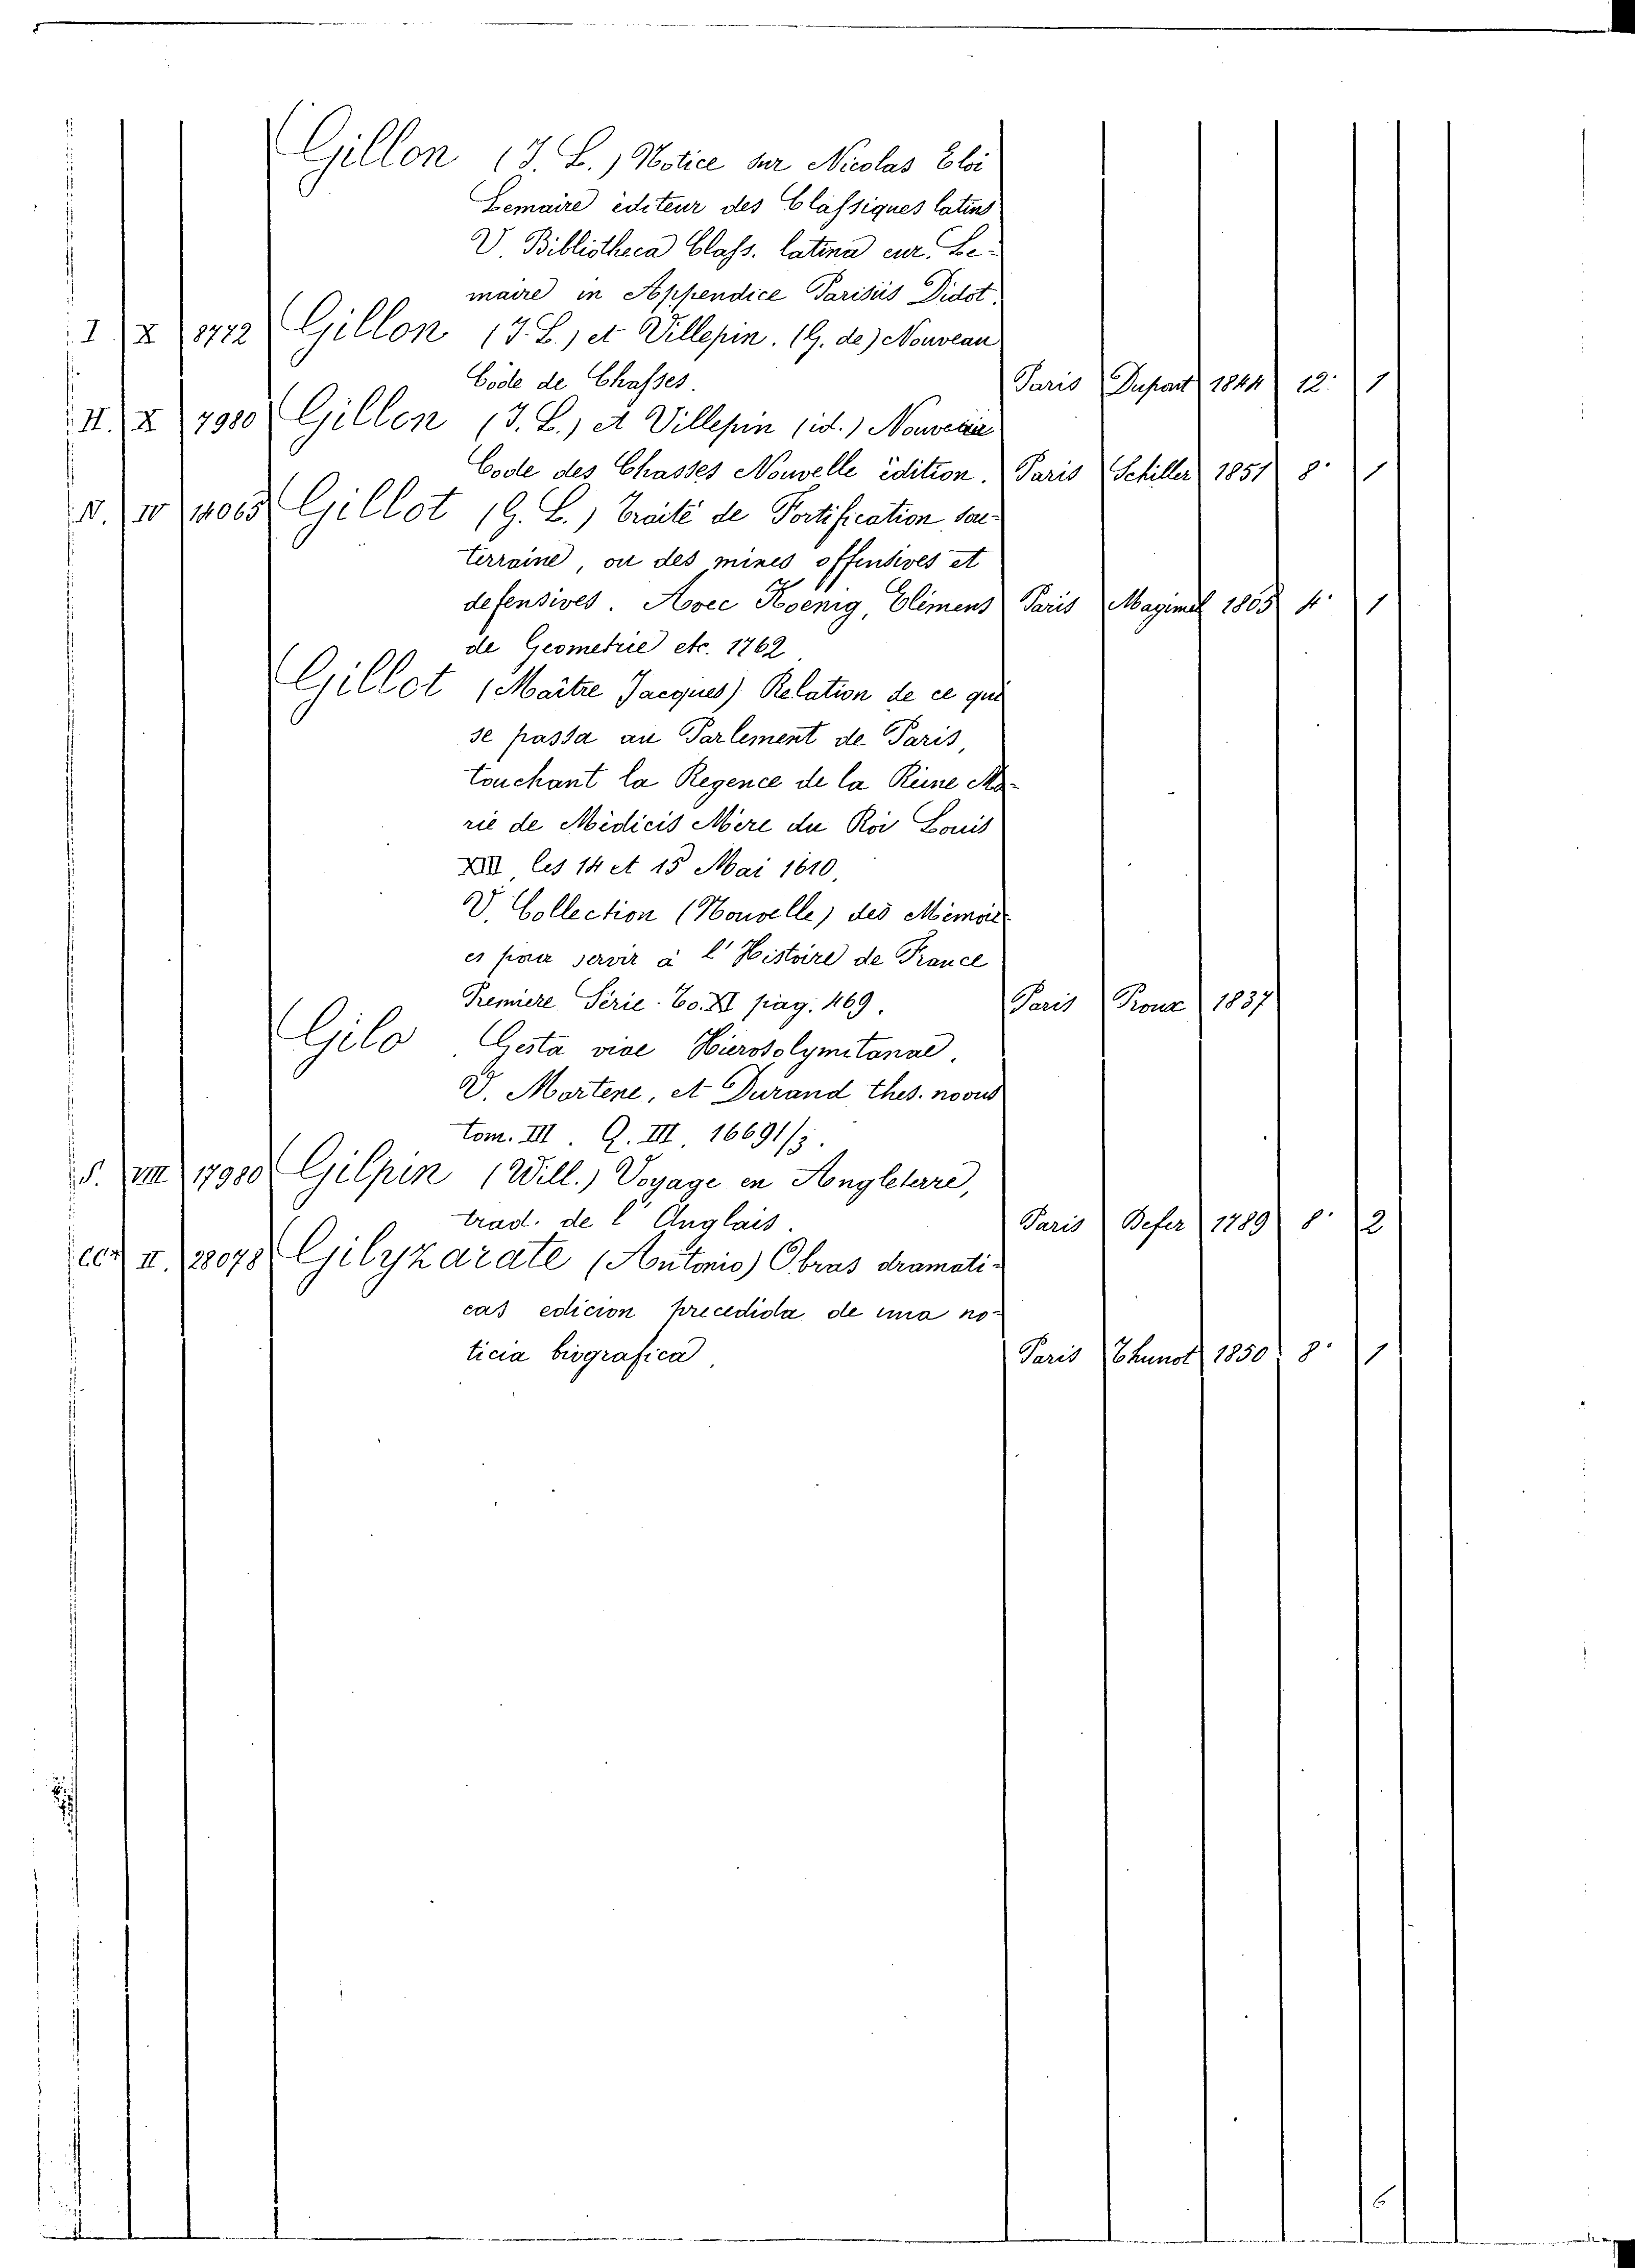 Gillon (J. L.) Notice sur Nicolas Eloi
Lemaire éditeur des Classiques latins
V. Bibliotheca Class. latina cur. Le-
maire in Appendice Parisiis Didot.
I X 8772 Gillon (J. L.) et Villepin. (G. de) Nouveau
Code de Chasses. Paris Dupont 1844 12. 1
II. X 7980 Gillon (J. L.) et Villepin (id.) Nouveau
Code des Chasses Nouvelle édition. Paris Schiller 1851 8. 1
IV 14065 Gillot (G. L.) Traité de Fortification sou-
terraine, ou des mines offensives et
defensives. Avec Koenig, Elémens Paris Magimel 1805 4. 1
de Geometrie etc. 1762.
Gillot (Maitre Jacques) Relation de ce qui
se passa au Parlement de Paris,
touchant la Regence de la Reine Ma-
rie de Médicis Mère du Roi Louis
XIII, les 14 et 15 Mai 1610.
V. Collection (Nouvelle) des Mémoir
es pour servir à l'Histoire de France
Premiere Série. To. XI pag. 469. Paris Proux 1837
Gilo Gesta viae Hierosolymitanae.
V. Martene, et Durand thes. novus
tom. III. Q. III. 16691/3.
S. VIII 17980 Gilpin (Will.) Voyage en Angleterre,
trad. de l'Anglais. Paris Defer 1789 8. 2
II. 28078 Gilyzarate (Antonio) Obras dramati-
cas edicion precedida de una no-
ticia biografica. Paris Thunot 1850 8. 1